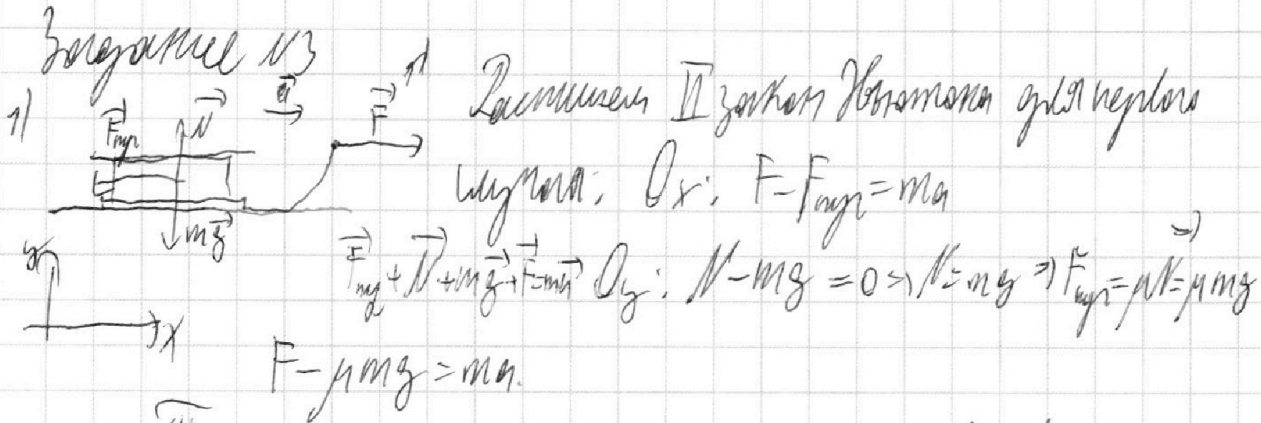 Задание №3
1) Fтр N a F 1) Распишем II закон Ньютона для первого
случая: Ox: F-Fтр=ma
mg
y Fтр+N+mg+F=ma Oy: N-mg=0=>N=mg=>Fтр=μN=μmg =>
x
F-μmg=ma.